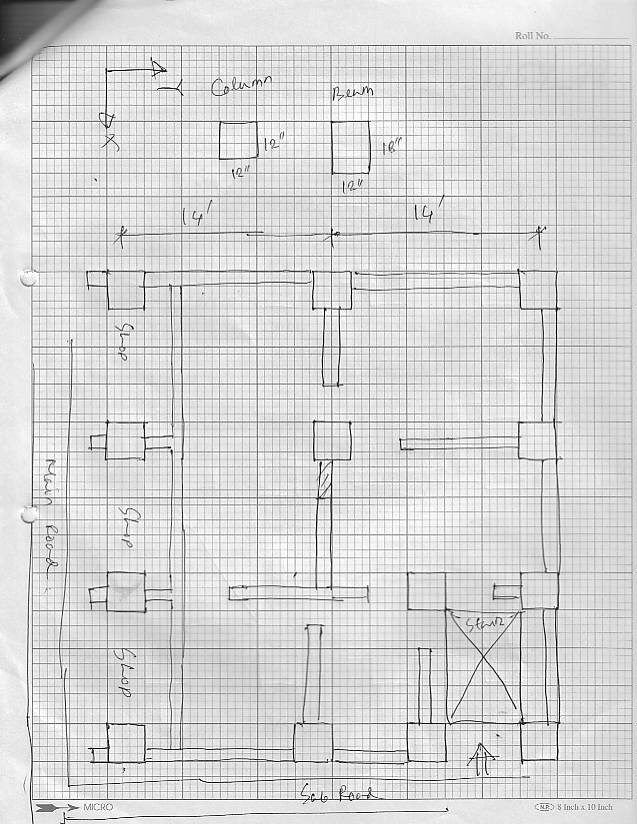 Roll No.
Y
X
Column
Beam
12"
12"
18"
12"
14'
14'
Shop
Main Road
Shop
Shop
Stair
Sub Road
MICRO
N.P. 8 Inch x 10 Inch